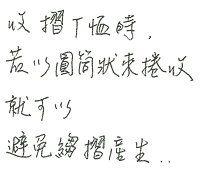 收摺T恤時,
若以圓筒狀來捲收
就可以
避免縐摺產生..